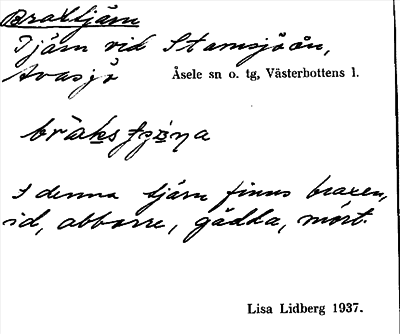 Braxtjärn
Tjärn vid Stamsjöån,
Avasjö Åsele sn o. tg, Västerbottens l.
I denna tjärn finns braxen,
id, abborre, gädda, mört.
Lisa Lidberg 1937.